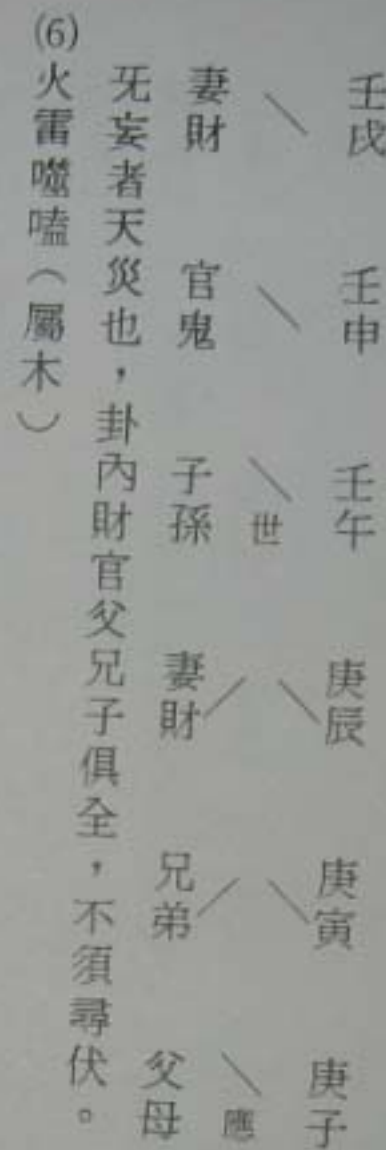 壬戌 壬申 壬午 庚辰 庚寅 庚子
世 應
妻財 官鬼 子孫 妻財 兄弟 父母
旡妄者天災也，卦內財官父兄子俱全，不須尋伏。
(6)火雷噬嗑（屬木）